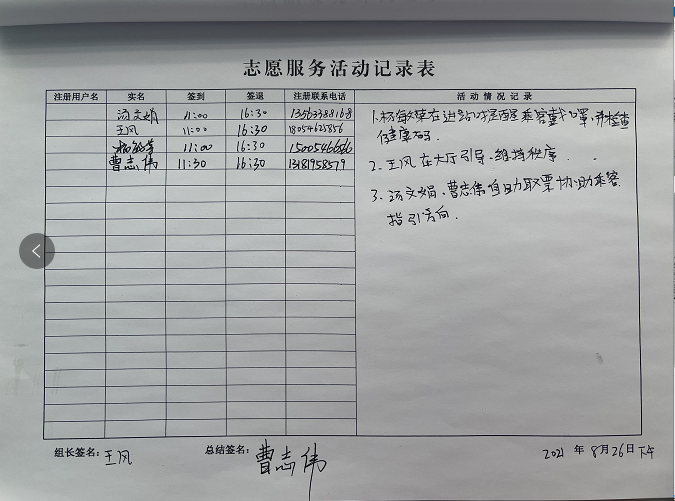 志愿服务活动记录表
注册用户名 实名 签到 签退 注册联系电话 活动情况记录
汤文娟 11:00 16:30 13563388168
王风 11:00 16:30 18054625856
11:00 16:30 15005466686
曹志伟 11:30 16:30 13181958579
1.杨敏 在进站口提醒乘客戴口罩,并检查
健康码.
2.王风在大厅引导、维持秩序.
3.汤文娟、曹志伟自助取票协助乘客
指引方向.
组长签名:王风 总结签名:曹志伟 2021年8月26日下午